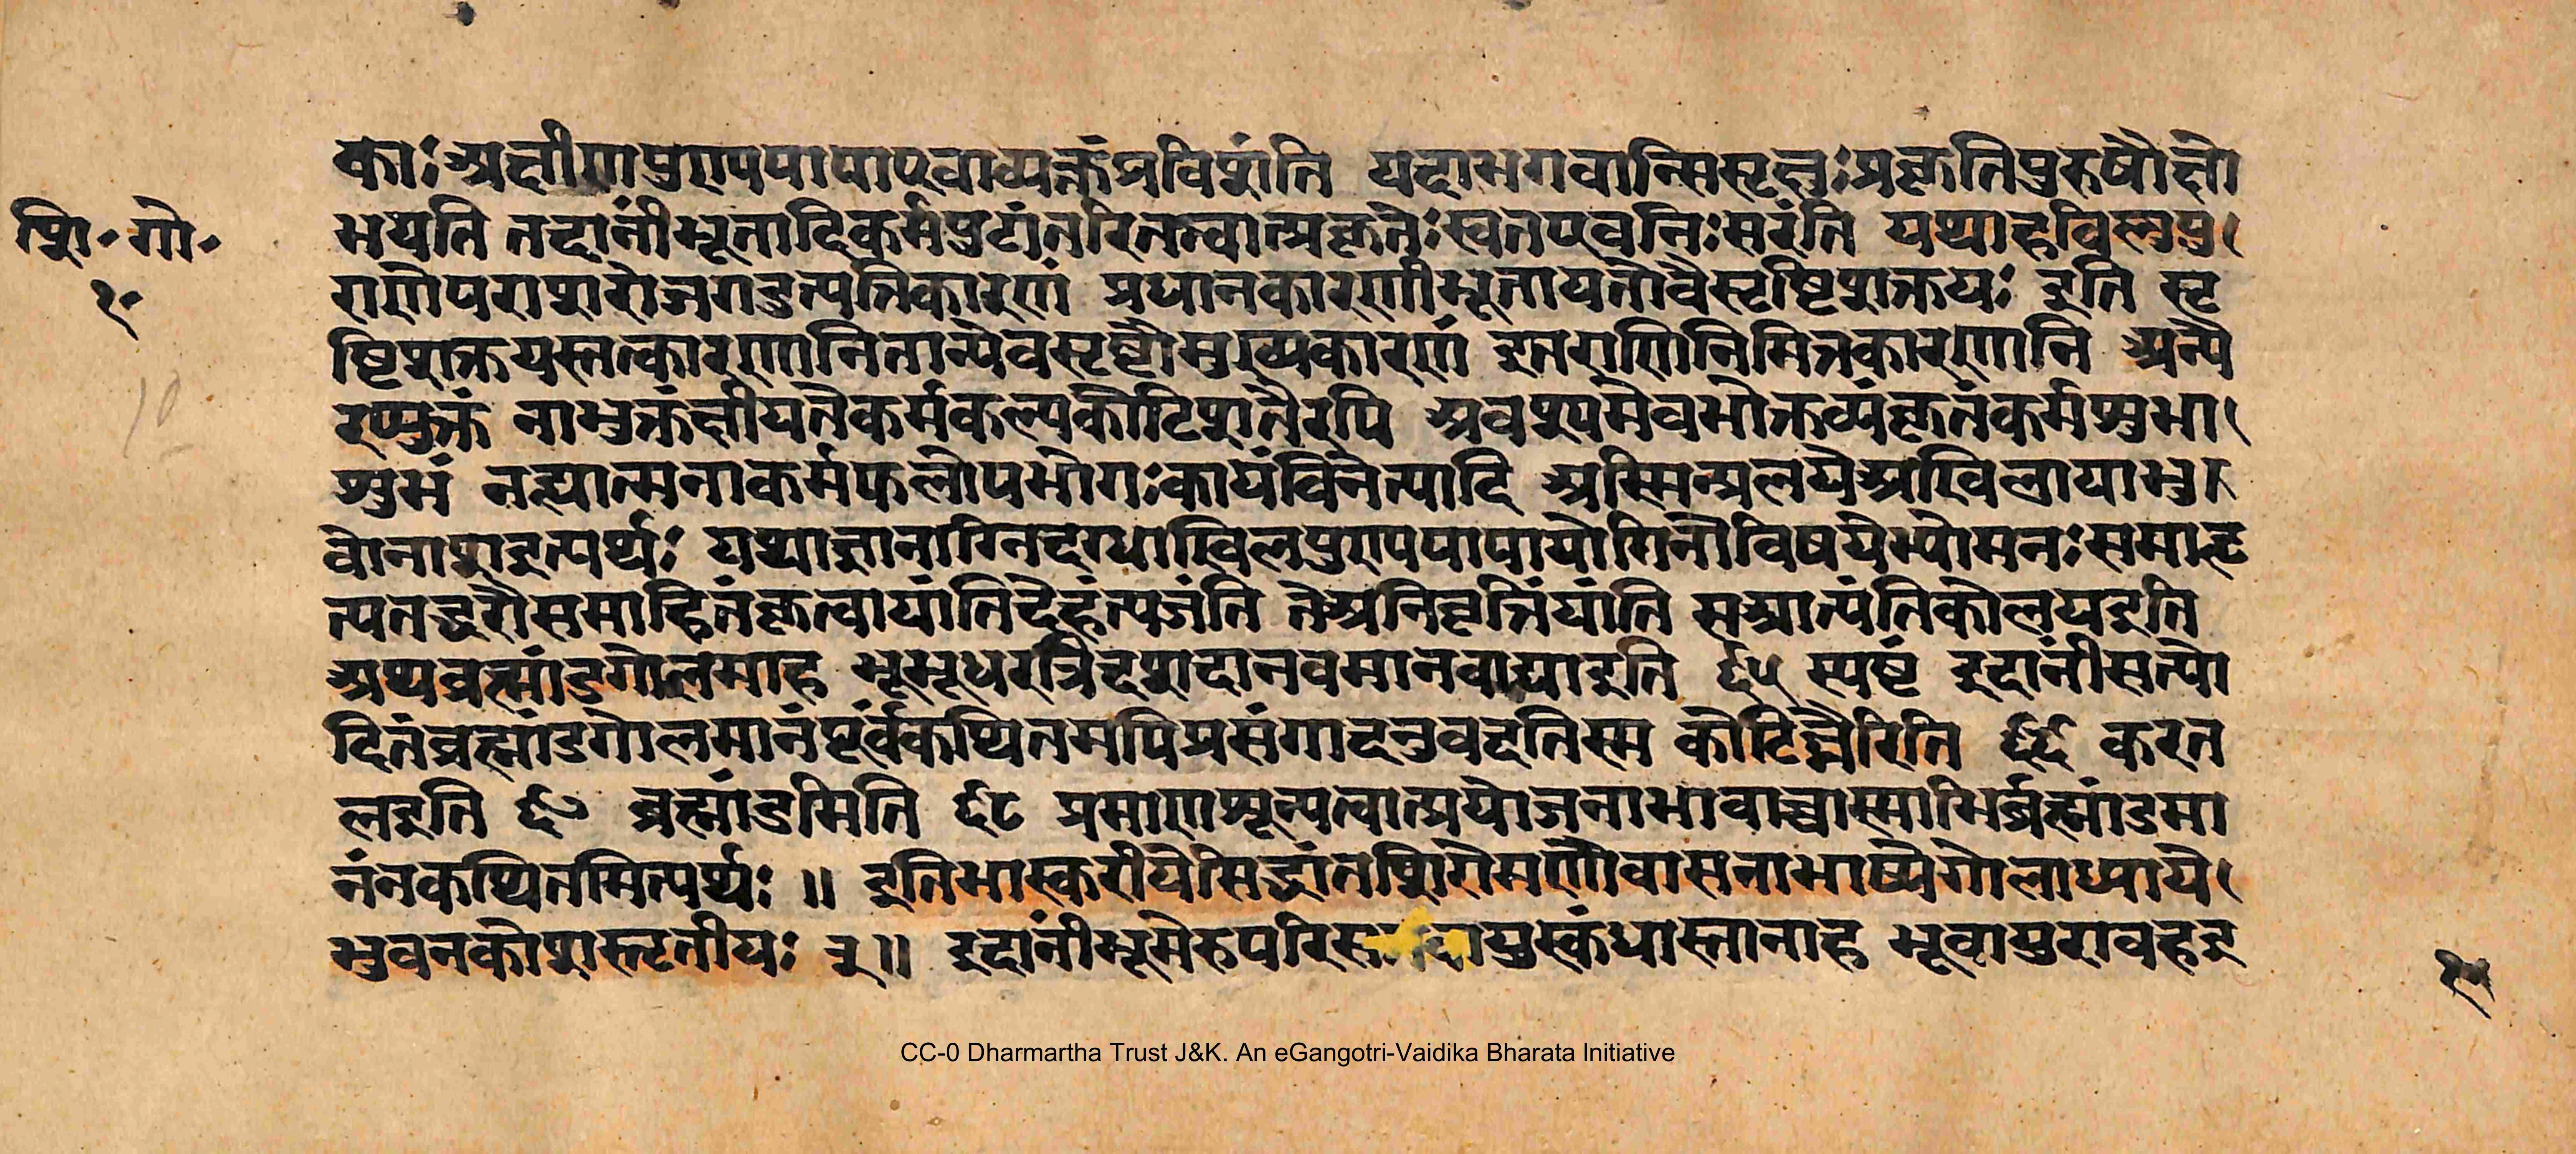 काः अक्षीणपुण्यपापाएवाव्यक्तंप्रविशंति यदाभगवान्सिसृक्षुःप्रकृतिपुरुषौक्षो
शि॰गो॰
१॰
भयति तदांनीभूतादिकर्मपुटांतरितत्वात्प्रकृतेःस्वतएवनिःसरंति यथाहविष्णुपु
राणेपराशरोजगदुत्पत्तिकारणं प्रधानकारणीभूतायतोवैसृष्टिशक्तयः इति सृ
ष्टिशक्तयस्तत्कारणानितान्येवसृष्टौमुख्यकारणं इतराणिनिमित्तकारणानि अन्यै
रप्युक्तं नाभुक्तंक्षीयतेकर्मकल्पकोटिशतैरपि अवश्यमेवभोक्तव्यंकृतंकर्मशुभा
शुभं नह्यात्मनाकर्मफलोपभोगःकायंविनेत्यादि अस्मिन्प्रलयेअखिलायाभु
वोनाशइत्यर्थः यथाज्ञानाग्निदग्धाखिलपुण्यपापायोगिनोविषयेभ्योमनःसमाहृ
त्यतद्धरौसमाहितंकृत्वायांतिदेहंत्यजंति तेअनिवृत्तिंयांति सआत्यंतिकोलयइति
अथब्रह्मांडगोलमाह भूभूधरत्रिदशदानवमानवाद्याइति ६५ स्पष्टं इदांनीसत्यो
दितंब्रह्मांडगोलमानंपूर्वंकथितमपिप्रसंगादनुवदतिस्म कोटिघ्नैरिति ६६ करत
लइति ६७ ब्रह्मांडमिति ६८ प्रमाणशून्यत्वात्प्रयोजनाभावाच्चास्माभिर्ब्रह्मांडमा
नंनकथितमित्यर्थः ॥ इतिभास्करीयेसिद्धांतशिरोमणौवासनाभाष्येगोलाध्याये
भुवनकोशस्तृतीयः ३॥ इदांनीभूमेरुपरिस वायुस्कंधास्तानाह भूवायुरावहइ
CC-0 Dharmartha Trust J&K. An eGangotri-Vaidika Bharata Initiative